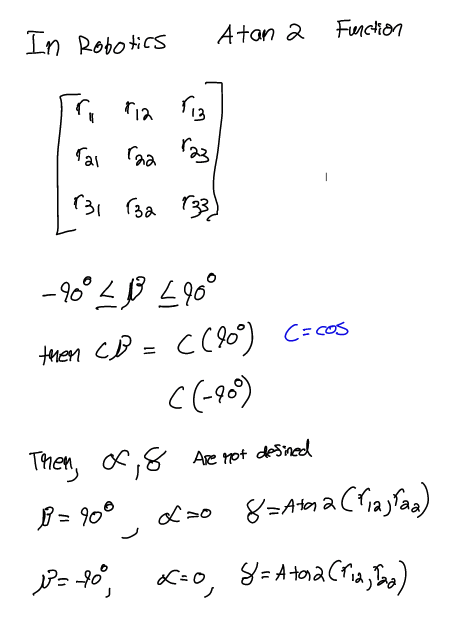 In Robotics Atan2 Function
r11 r12 r13
r21 r22 r23
r31 r32 r33
-90° ≤ β ≤ 90°
then Cβ = C(90°) C = cos
C(-90°)
Then, α, γ Are not desined
β = 90°, α = 0 γ = Atan2(r12, r22)
β = -90°, α = 0, γ = Atan2(r12, r22)